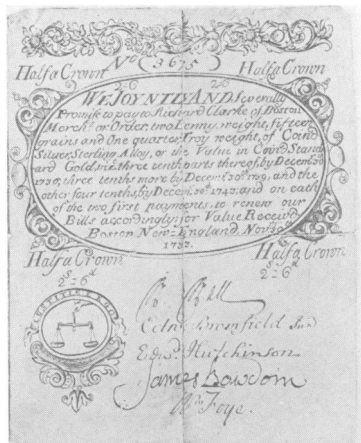 No (3675)
Half a Crown Half a Crown
2-6 2-6
WE JOYNTLY AND Severally
Promise to pay to Richard Clarke of Boston
Merchr. or Order, two Penny weight, fifteen
grains and One quarter, Troy weight, of Coin'd
Silver, Sterling Alloy, or the Value in Coin'd Stand
ard Gold, viz. three tenth parts thereof, by Decem. 30th
three tenths more by Decem. 30th 1739, and the
other four tenths, by Decem. 30th 1743. and on each
of the two first payments. to renew our
Bills accordingly: for Value Receiv'd
Boston New-England Nov. 30
1733.
Half a Crown Half a Crown
2s-6d 2s-6d
Edw. Bromfield Junr
Edwd. Hutchinson
James Bowdoin
Wm Foye.